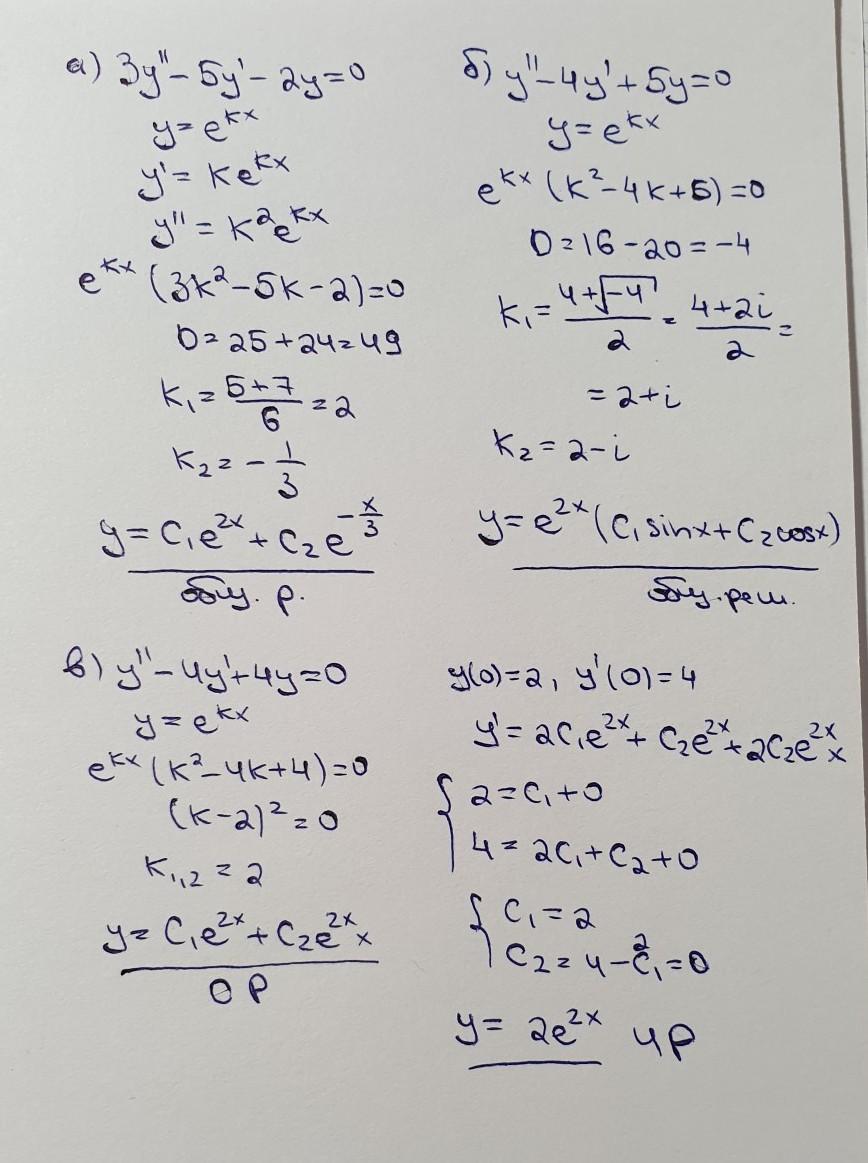 а) 3y'' - 5y' - 2y = 0
y = e^{kx}
y' = ke^{kx}
y'' = k²e^{kx}
e^{kx} (3k² - 5k - 2) = 0
D = 25 + 24 = 49
k₁ = \frac{5+7}{6} = 2
k₂ = -\frac{1}{3}
y = C₁e^{2x} + C₂e^{-\frac{x}{3}}
общ. р.
б) y'' - 4y' + 5y = 0
y = e^{kx}
e^{kx} (k² - 4k + 5) = 0
D = 16 - 20 = -4
k₁ = \frac{4+\sqrt{-4}}{2} = \frac{4+2i}{2} =
= 2 + i
k₂ = 2 - i
y = e^{2x} (C₁ sinx + C₂ cosx)
общ. реш.
в) y'' - 4y' + 4y = 0
y = e^{kx}
e^{kx} (k² - 4k + 4) = 0
(k - 2)² = 0
k₁,₂ = 2
y = C₁e^{2x} + C₂e^{2x} x
ОР
y(0) = 2, y'(0) = 4
y' = 2C₁e^{2x} + C₂e^{2x} + 2C₂e^{2x} x
{ 2 = C₁ + 0
4 = 2C₁ + C₂ + 0
{ C₁ = 2
C₂ = 4 - 2C₁ = 0
y = 2e^{2x} ЧР